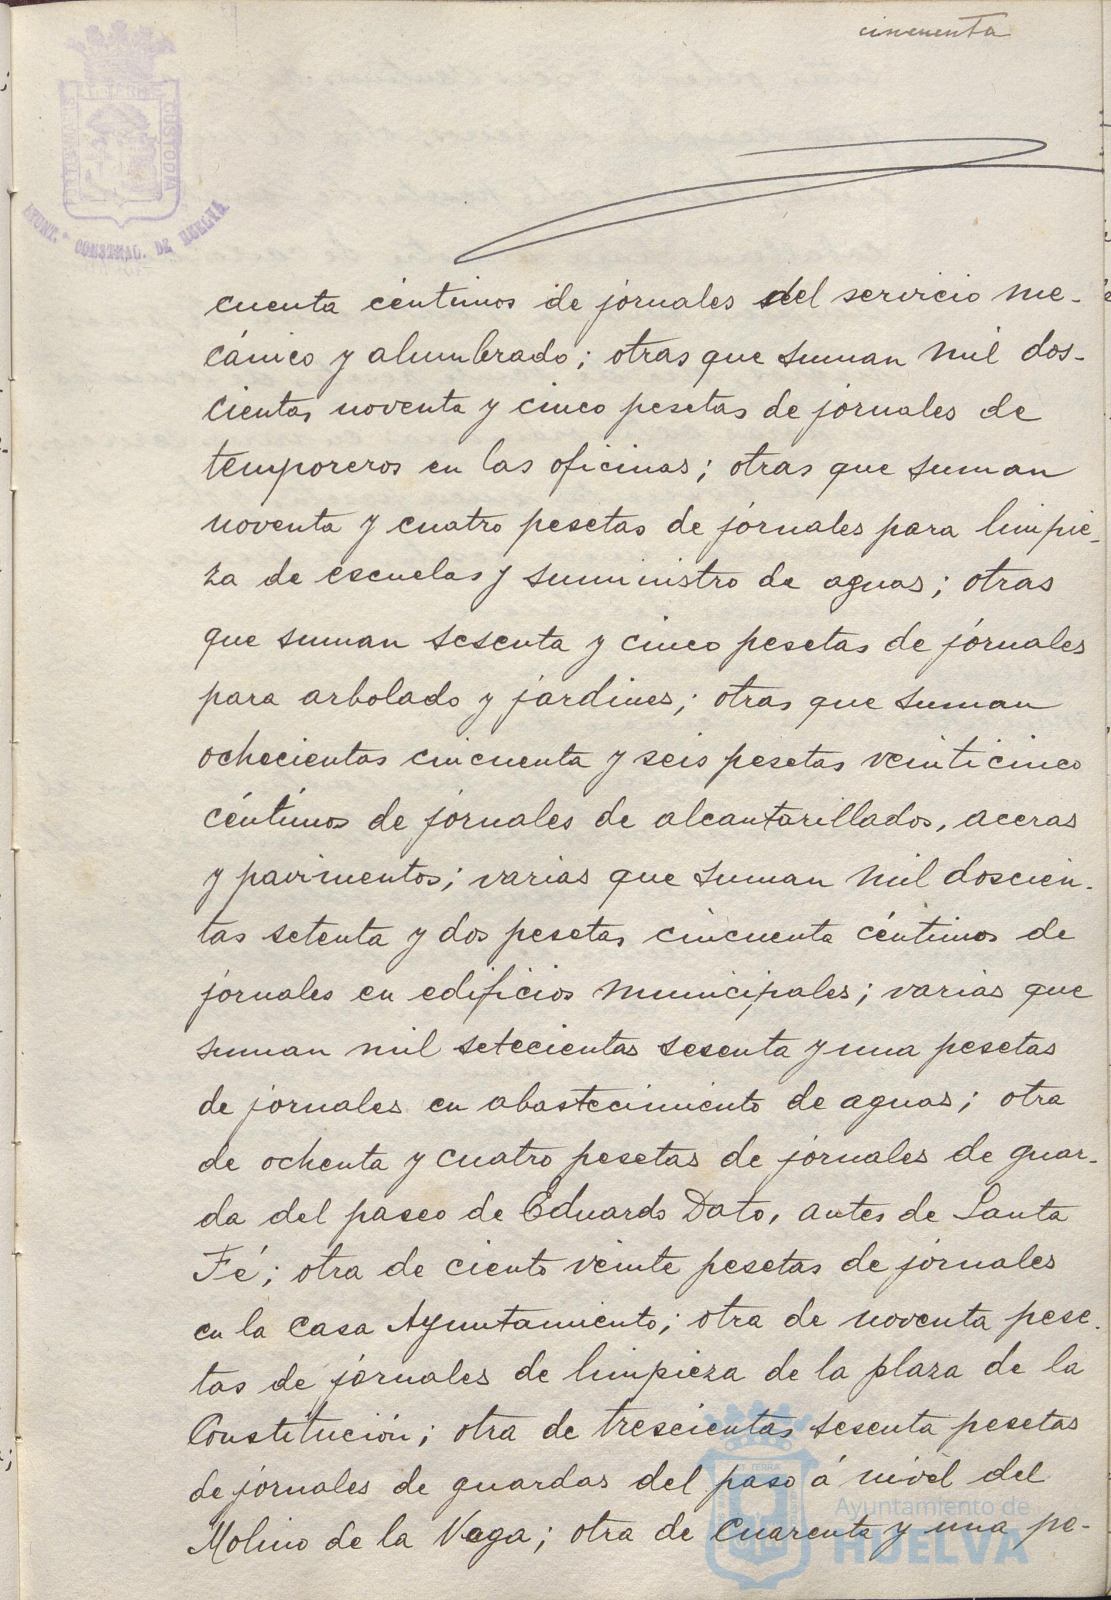 cincuenta
PORTUS MARIS
ET TERRE
CUSTODIA
AYUNT.º CONSTNAL. DE HUELVA
cuenta céntimos de jornales del servicio me-
cánico y alumbrado; otras que suman mil dos-
cientas noventa y cinco pesetas de jornales de
temporeros en las oficinas; otras que suman
noventa y cuatro pesetas de jornales para limpie-
za de escuelas y suministro de aguas; otras
que suman sesenta y cinco pesetas de jornales
para arbolado y jardines; otras que suman
ochecientas cincuenta y seis pesetas veinticinco
céntimos de jornales de alcantarillados, aceras
y pavimentos; varias que suman mil doscien-
tas setenta y dos pesetas cincuenta céntimos de
jornales en edificios municipales; varias que
suman mil setecientas sesenta y una pesetas
de jornales en abastecimiento de aguas; otra
de ochenta y cuatro pesetas de jornales de guar-
da del paseo de Eduardo Dato, antes de Santa
Fé; otra de ciento veinte pesetas de jornales
en la Casa Ayuntamiento; otra de noventa pese-
tas de jornales de limpieza de la plaza de la
Constitución; otra de trescientas sesenta pesetas
de jornales de guardas del paso á nivel del
Molino de la Vega; otra de cuarenta y una pe-
Ayuntamiento de
HUELVA